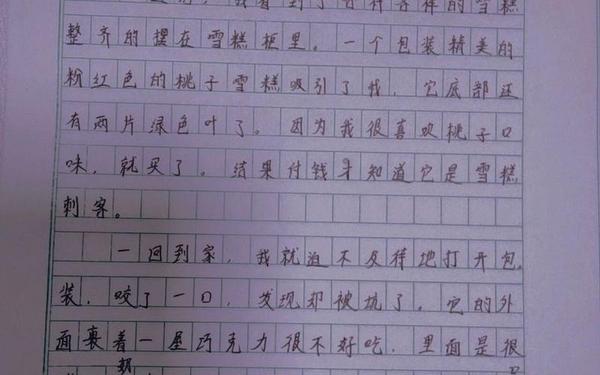 我看到了各种各样的雪糕
整齐的摆在雪糕柜里。一个包装精美的
粉红色的桃子雪糕吸引了我，它底部还
有两片绿色叶了。因为我很喜欢桃子口
味，就买了。结果付钱才知道它是雪糕
刺客。
一回到家，我就迫不及待地打开包
装，咬了一口，发现却被坑了。它的外
面裹着一层巧克力很不好吃，里面是很